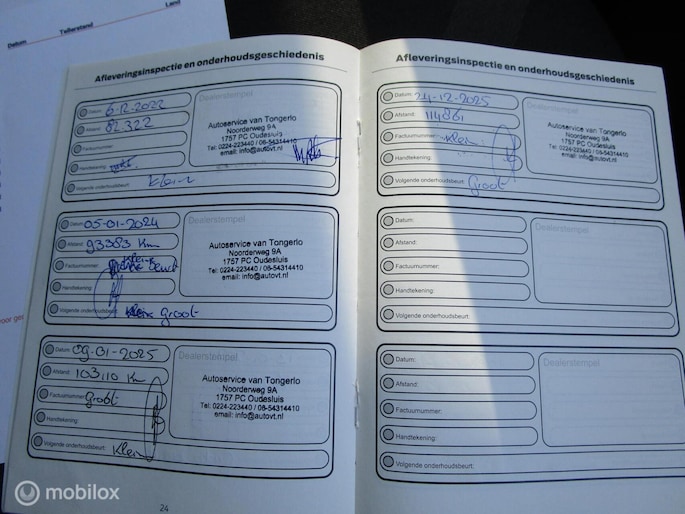 Datum Tellerstand Land
Afleveringsinspectie en onderhoudsgeschiedenis
Datum: 6-12-2022
Afstand: 82.322
Factuurnummer:
Handtekening:
Volgende onderhoudsbeurt: Klein
Dealerstempel
Autoservice van Tongerlo
Noorderweg 9A
1757 PC Oudesluis
Tel: 0224-223440 / 06-54314410
email: info@autovt.nl
Datum: 05-01-2024
Afstand: 93383 Km
Factuurnummer: Klein
Beurt
Handtekening:
Volgende onderhoudsbeurt: Klein Groot
Dealerstempel
Autoservice van Tongerlo
Noorderweg 9A
1757 PC Oudesluis
Tel: 0224-223440 / 06-54314410
email: info@autovt.nl
Datum: 09-01-2025
Afstand: 103110 Km
Factuurnummer: Groot
Handtekening:
Volgende onderhoudsbeurt: Klein
Dealerstempel
Autoservice van Tongerlo
Noorderweg 9A
1757 PC Oudesluis
Tel: 0224-223440 / 06-54314410
email: info@autovt.nl
24
Afleveringsinspectie en onderhoudsgeschiedenis
Datum: 24-12-2025
Afstand: 114861
Factuurnummer: Klein
Handtekening:
Volgende onderhoudsbeurt: Groot
Dealerstempel
Autoservice van Tongerlo
Noorderweg 9A
1757 PC Oudesluis
Tel: 0224-223440 / 06-54314410
email: info@autovt.nl
Datum:
Afstand:
Factuurnummer:
Handtekening:
Volgende onderhoudsbeurt:
Dealerstempel
Datum:
Afstand:
Factuurnummer:
Handtekening:
Volgende onderhoudsbeurt:
Dealerstempel
mobilox